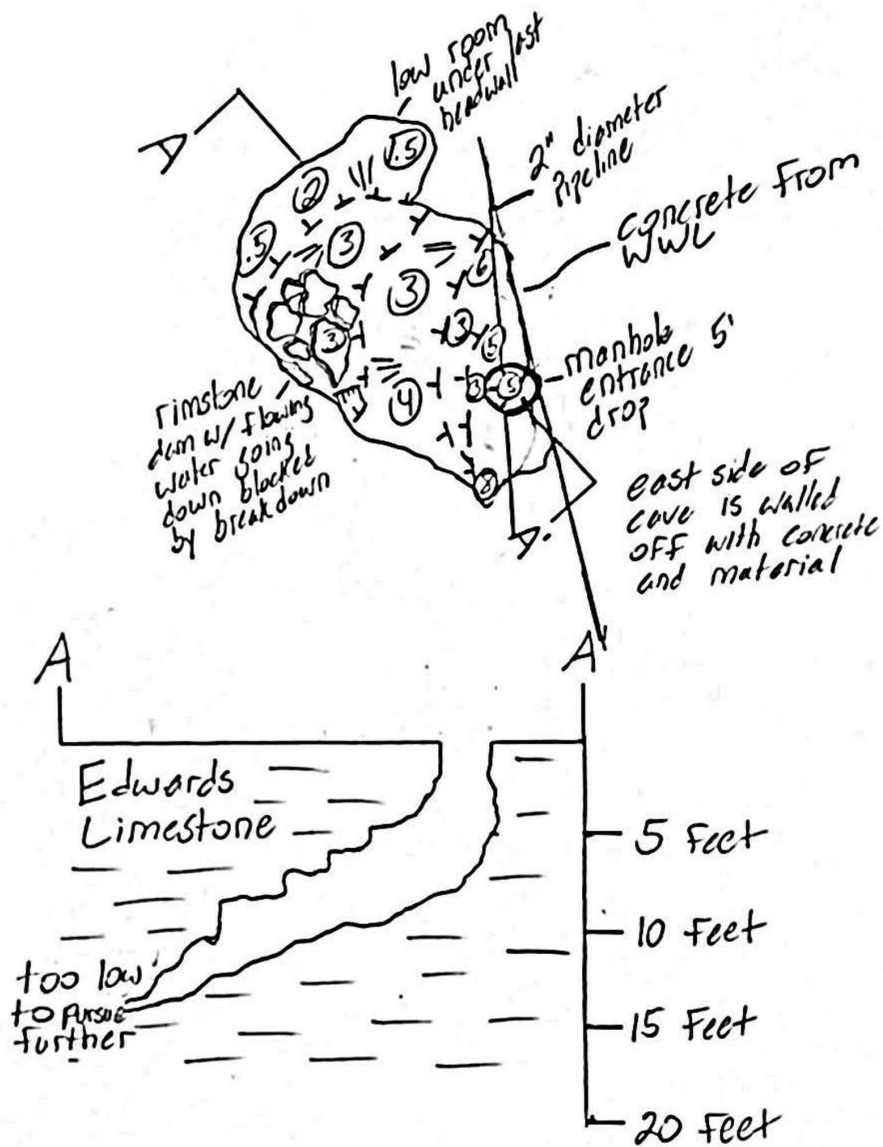 low room
under last
headwall
A
2" diameter
pipeline
concrete from
WWL
.5
2
.5
3
3
6
3
5
3
3
5
4
8
manhole
entrance 5'
drop
rimstone
dam w/ flowing
water going
down blocked
by breakdown
east side of
cave is walled
off with concrete
and material
A'
A
A'
Edwards
Limestone
5 Feet
10 Feet
too low
to pursue
further
15 Feet
20 Feet